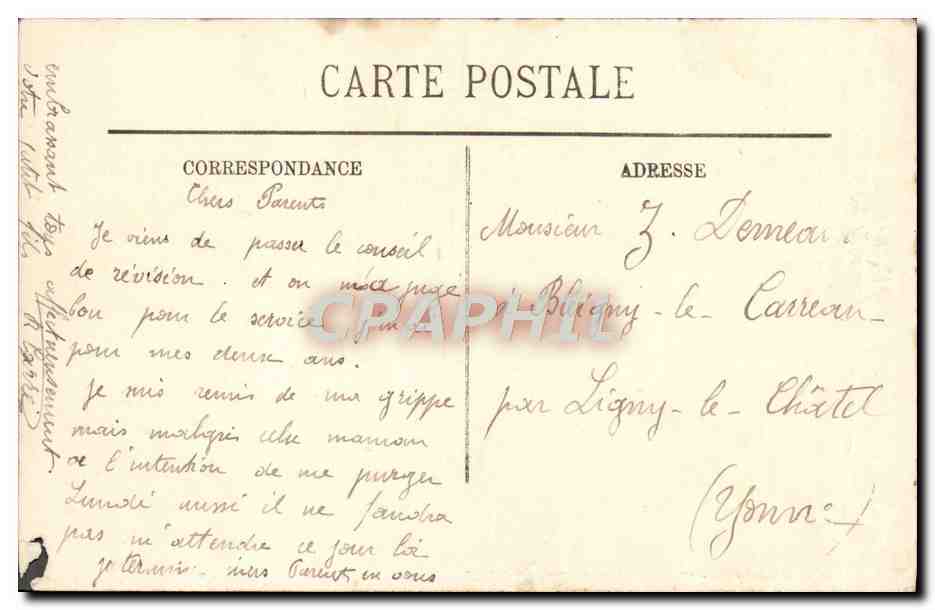 CARTE POSTALE
CORRESPONDANCE
Chers Parents
Je viens de passer le conseil
de révision. et on m'a jugé
bon pour le service, j'en ai
pour mes deux ans.
Je suis remis de ma grippe
mais malgrés cela maman
a l'intention de me purger
Lundi aussi il ne faudra
pas m'attendre ce jour là
je termine chers Parents en vous
embrassant tous affectueusement.
Votre petit fils
ADRESSE
Monsieur Z.
à Bligny-le-Carreau
par Ligny-le-Châtel
(Yonne)
CPAPHIL